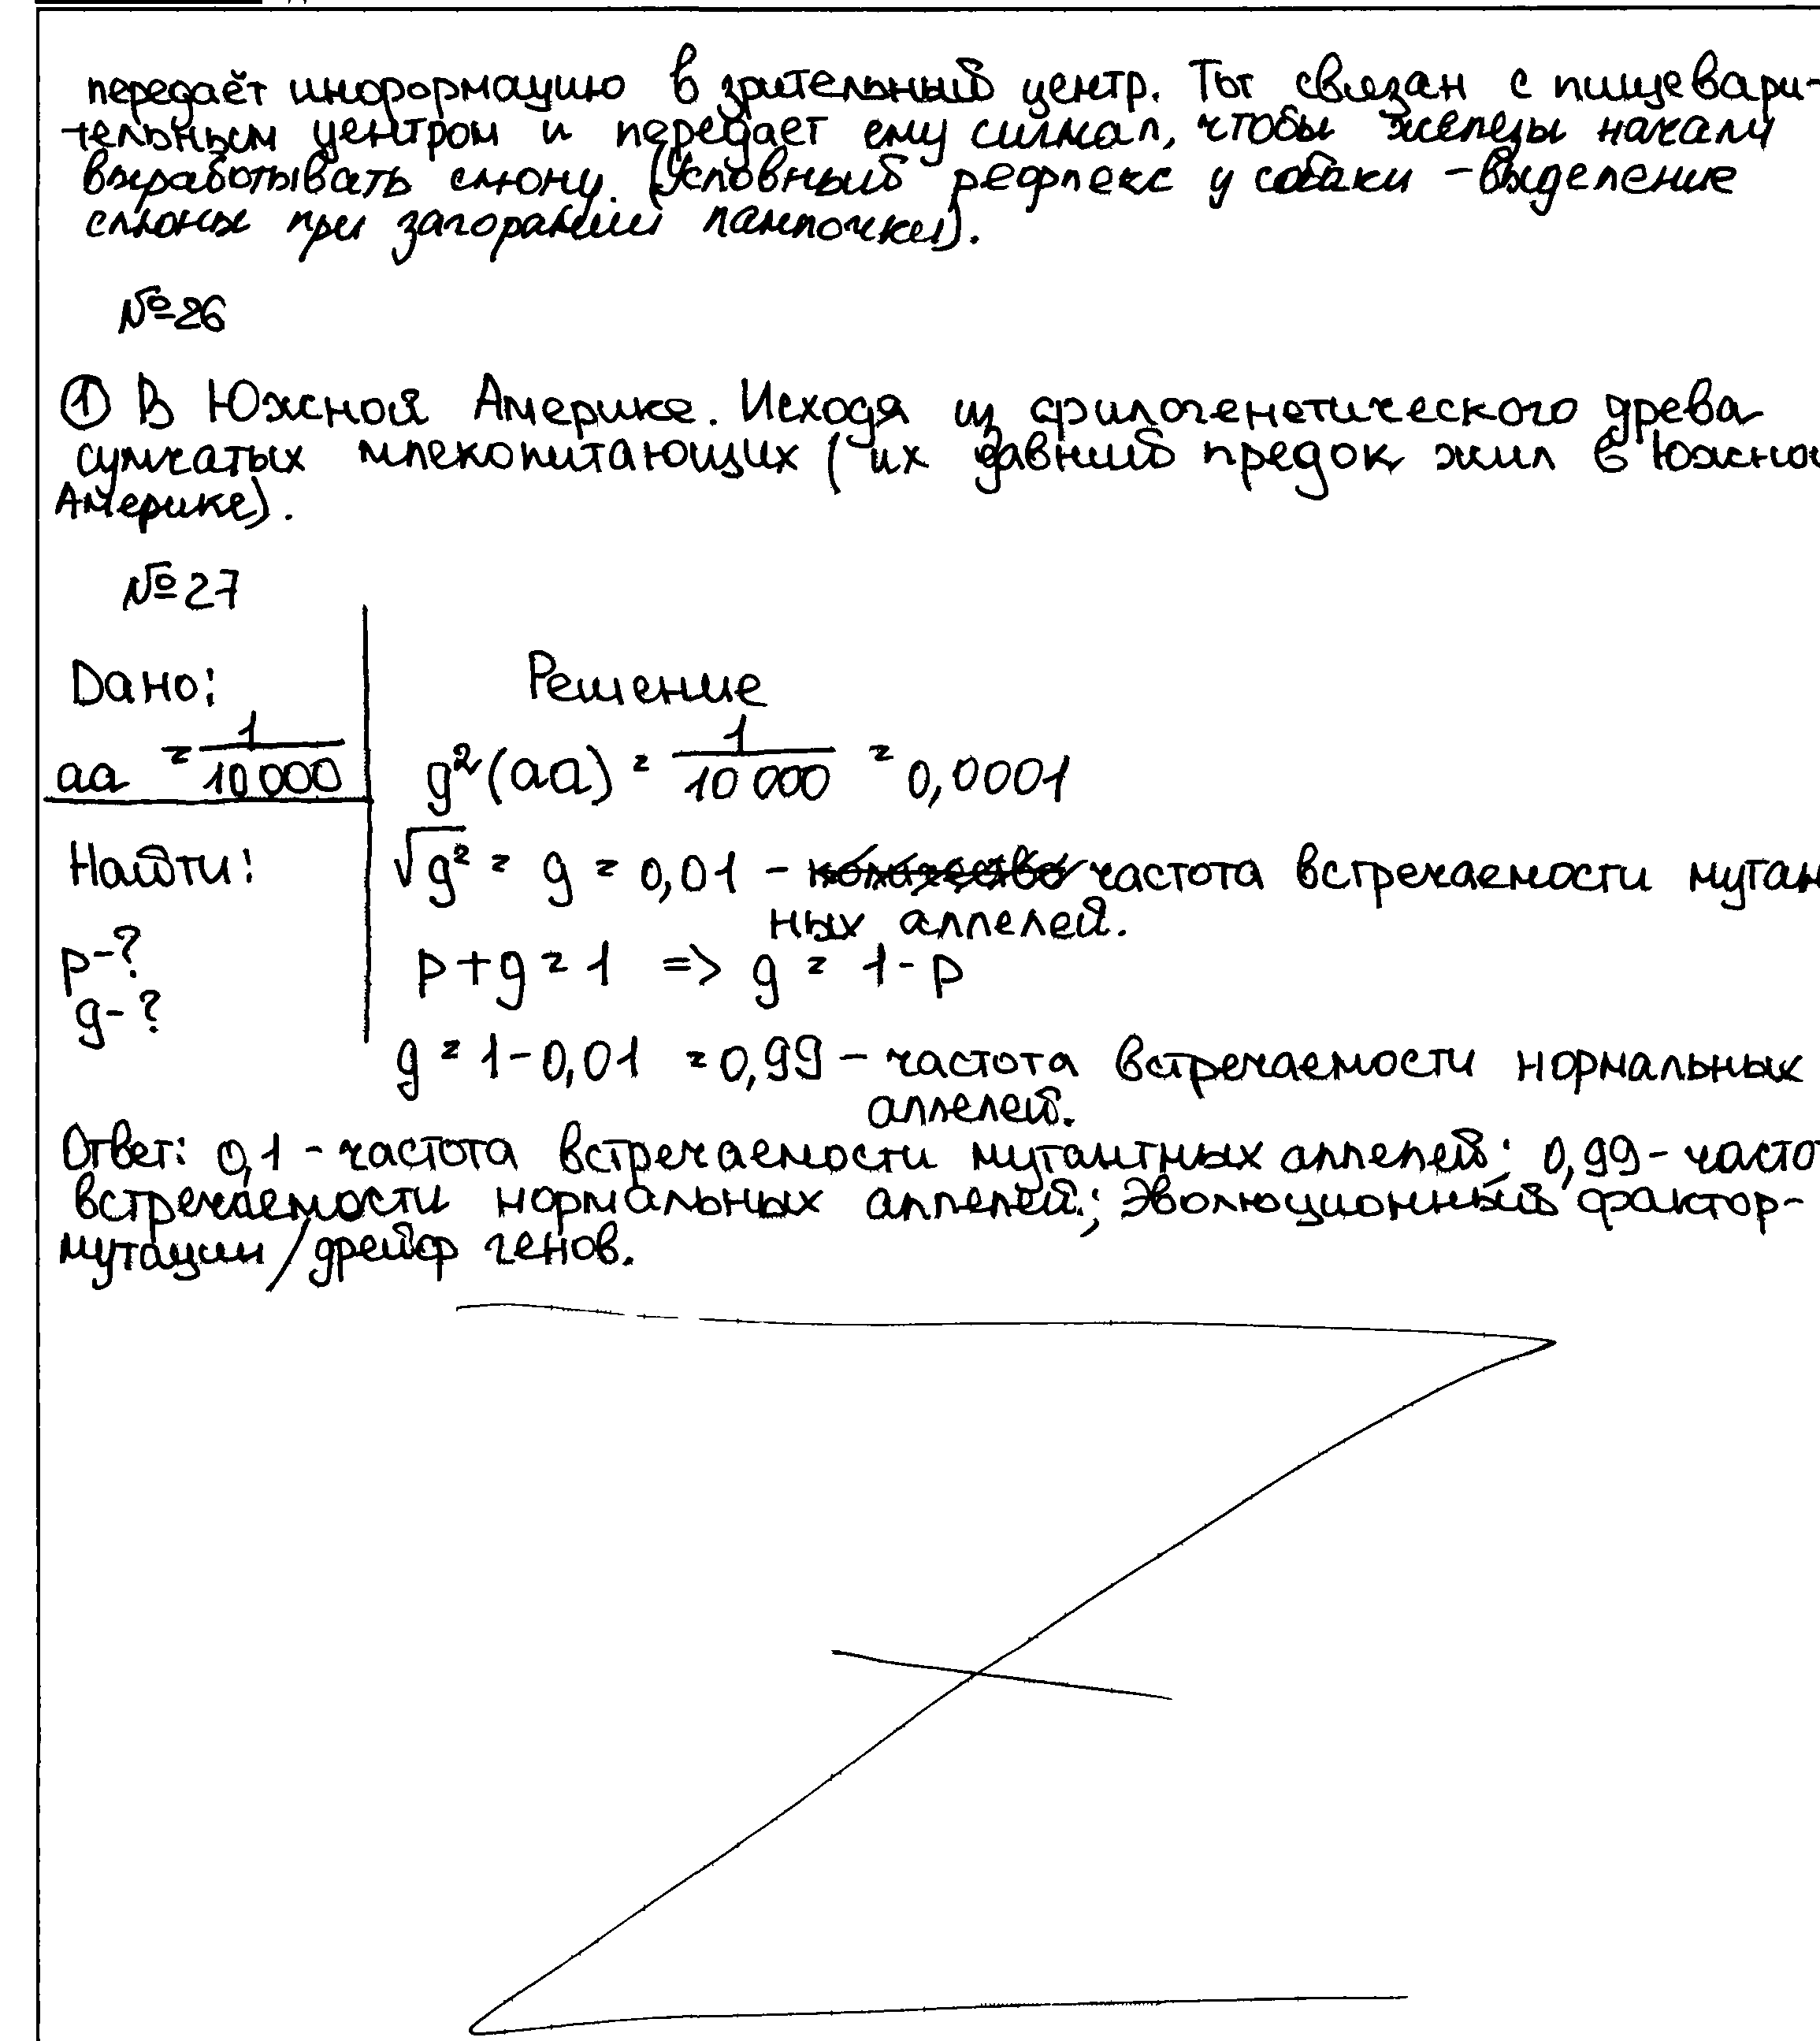 передаёт информацию в зрительный центр. Тот связан с пищевари-
тельным центром и передает ему сигнал, чтобы железы начали
вырабатывать слюну. (Условный рефлекс у собаки - выделение
слюны при загорании лампочки).
№26
① В Южной Америке. Исходя из филогенетического древа
сумчатых млекопитающих (их давний предок жил в Южной
Америке).
№27
Дано:
Решение
aa = 1/10 000
g²(aa) = 1/10 000 = 0,0001
Найти:
√g² = g = 0,01 - частота встречаемости мутан
ных аллелей.
p-?
p+g=1 => g = 1-p
g-?
g = 1-0,01 = 0,99 - частота встречаемости нормальных
аллелей.
Ответ: 0,1 - частота встречаемости мутантных аллелей; 0,99 - часто
встречаемости нормальных аллелей.; Эволюционный фактор-
мутации/дрейф генов.